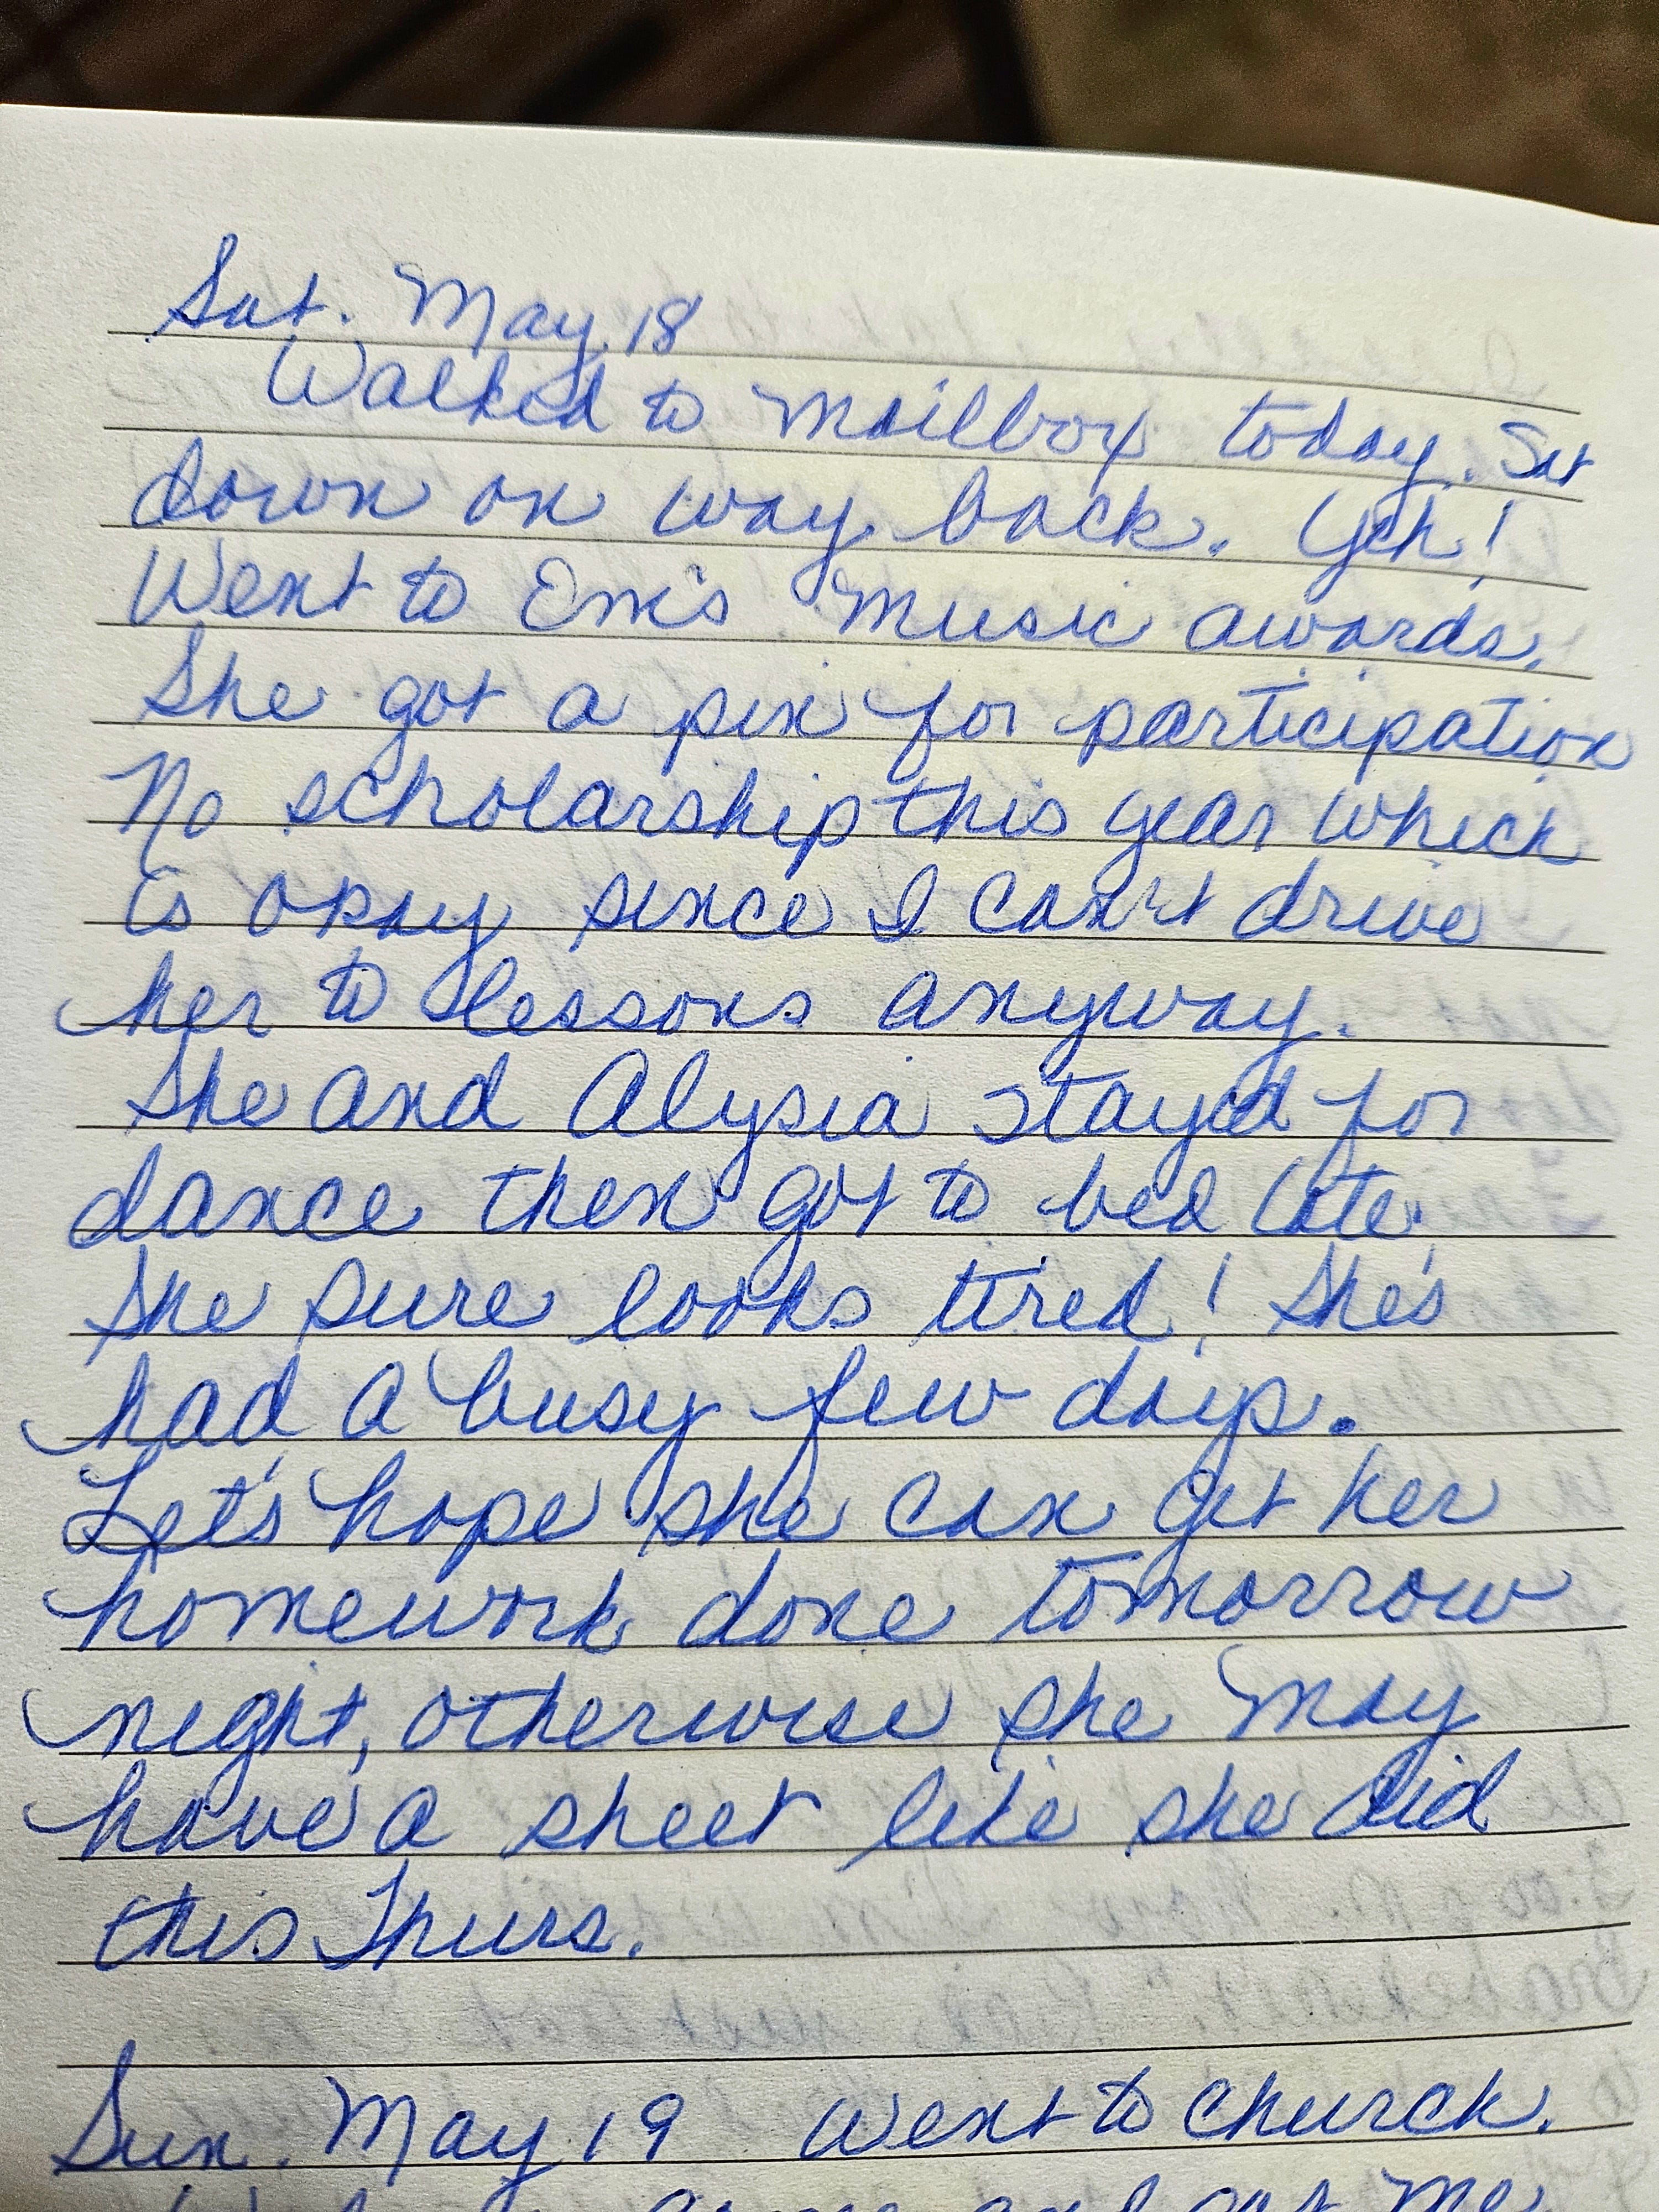 Sat. May 18
Walked to mailbox today. Sat
down on way back. Yeh!
Went to Em's music awards.
She got a pin for participation
No scholarship this year which
is okay since I can't drive
her to lessons anyway.
She and Alysia stayed for
dance then got to bed late.
She sure looks tired! She's
had a busy few days.
Let's hope she can get her
homework done tomorrow
night, otherwise she may
have a sheet like she did
this Thurs.
Sun. May 19 Went to church.
and got me